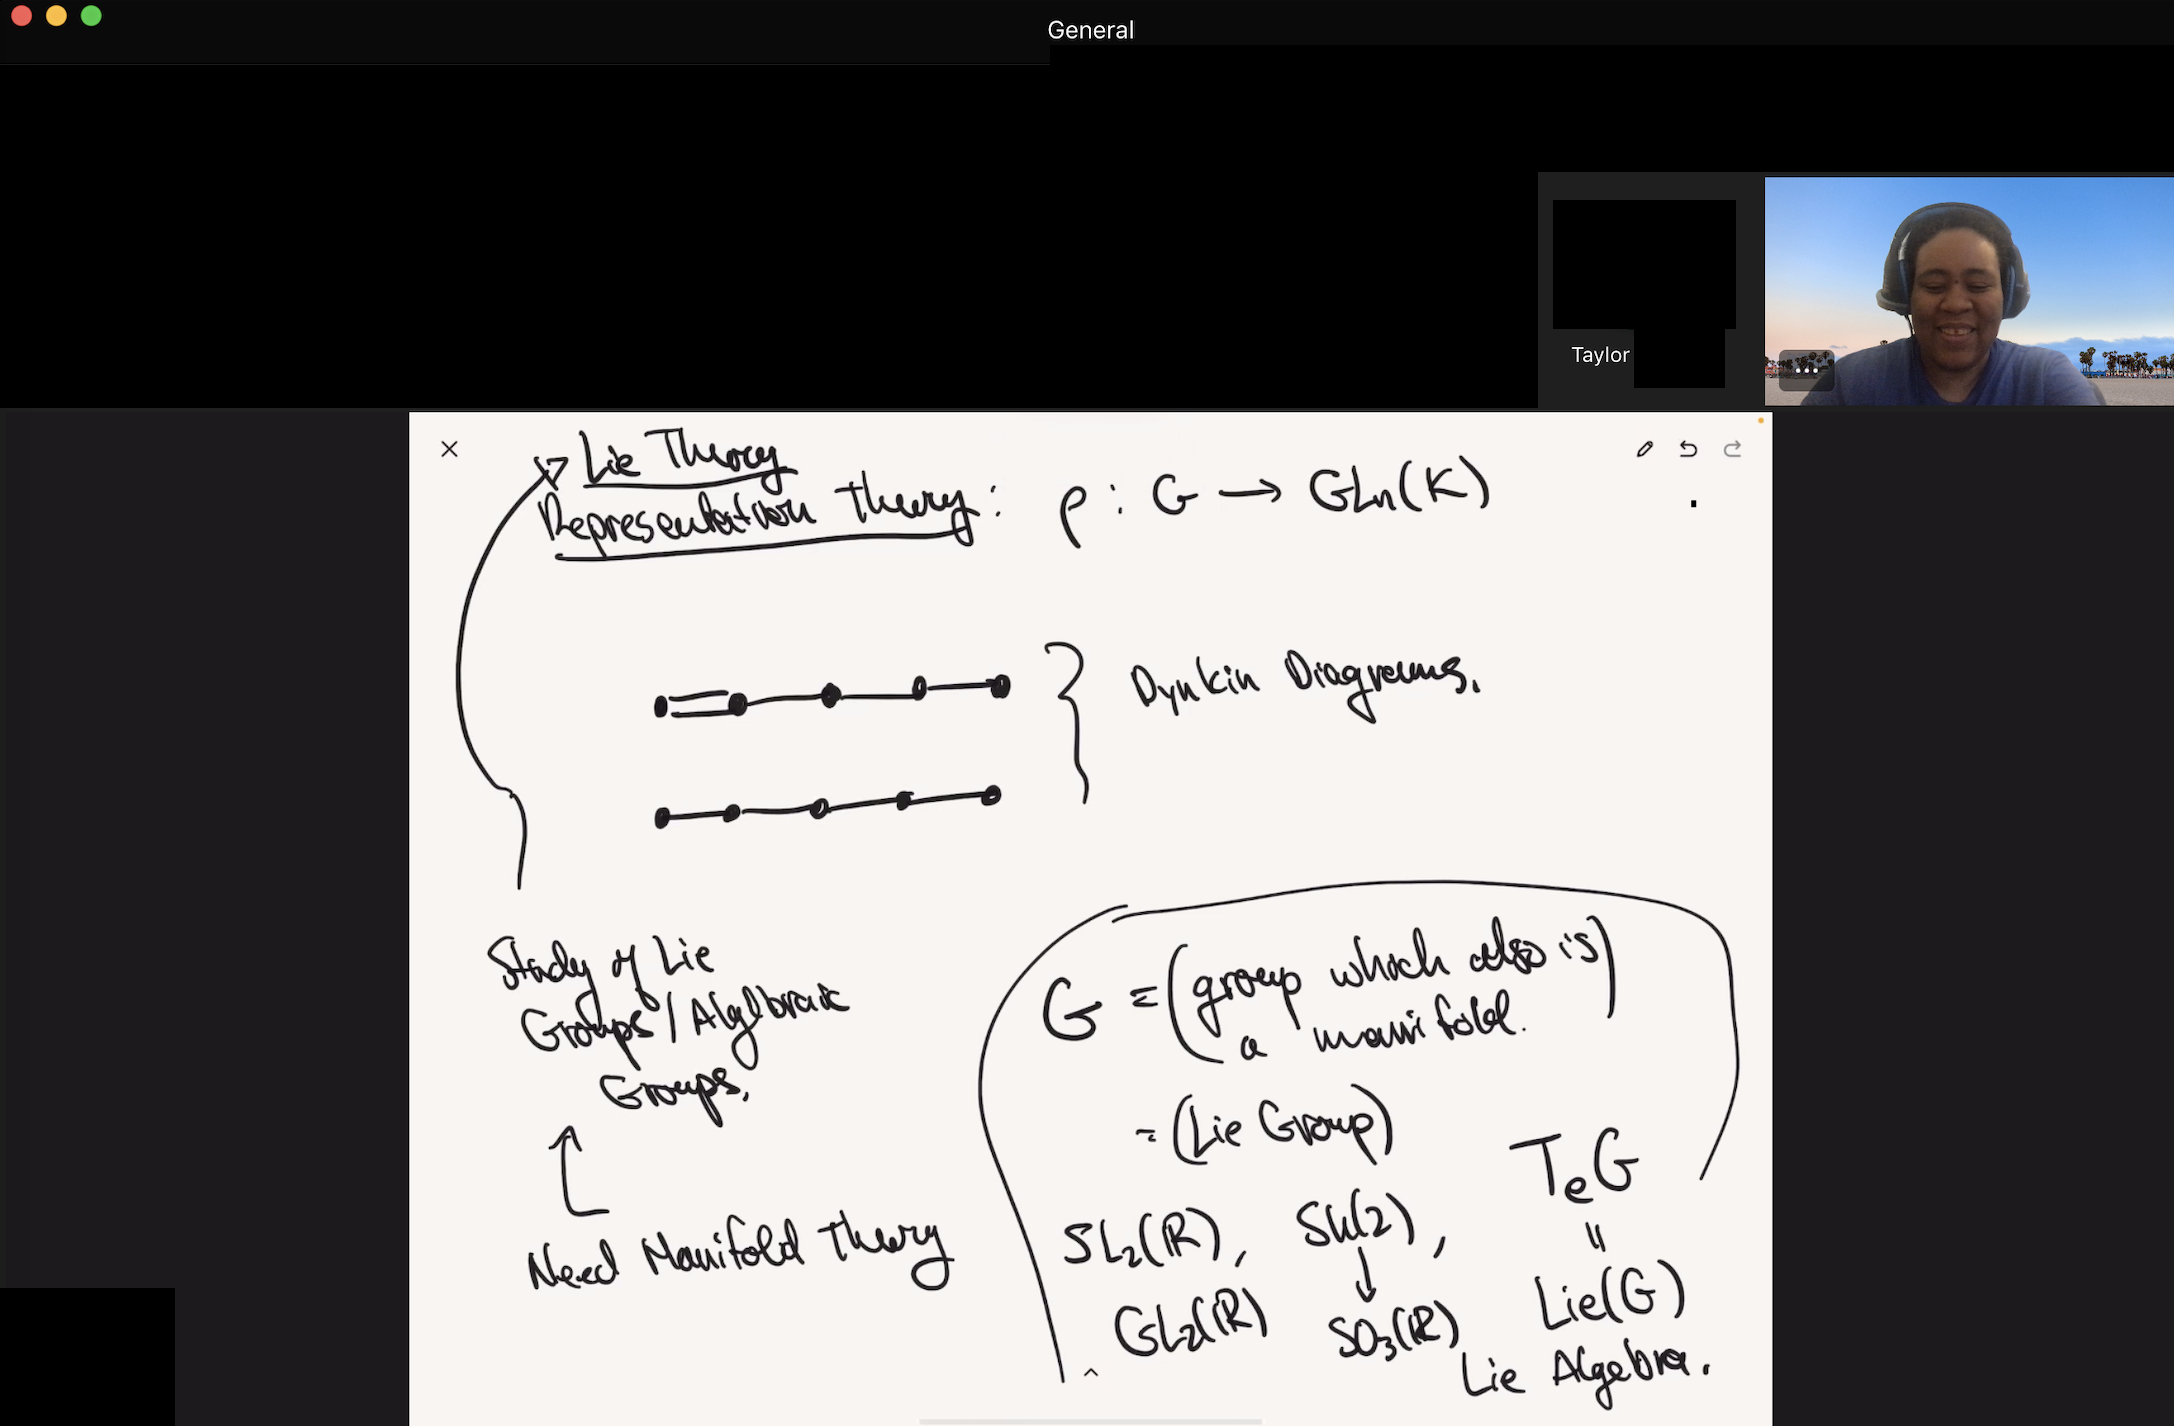 General
Taylor
Lie Theory
Representation Theory: ρ : G → GLn(K)
Dynkin Diagrams.
Study of Lie
Groups / Alglbraic
Groups.
Need Manifold Theory
G = (group which also is
a manifold.)
= (Lie Group)
SL₂(ℝ), SU(2),
↓
GL₂(ℝ) SO₃(ℝ)
TₑG
=
Lie(G)
Lie Algebra.